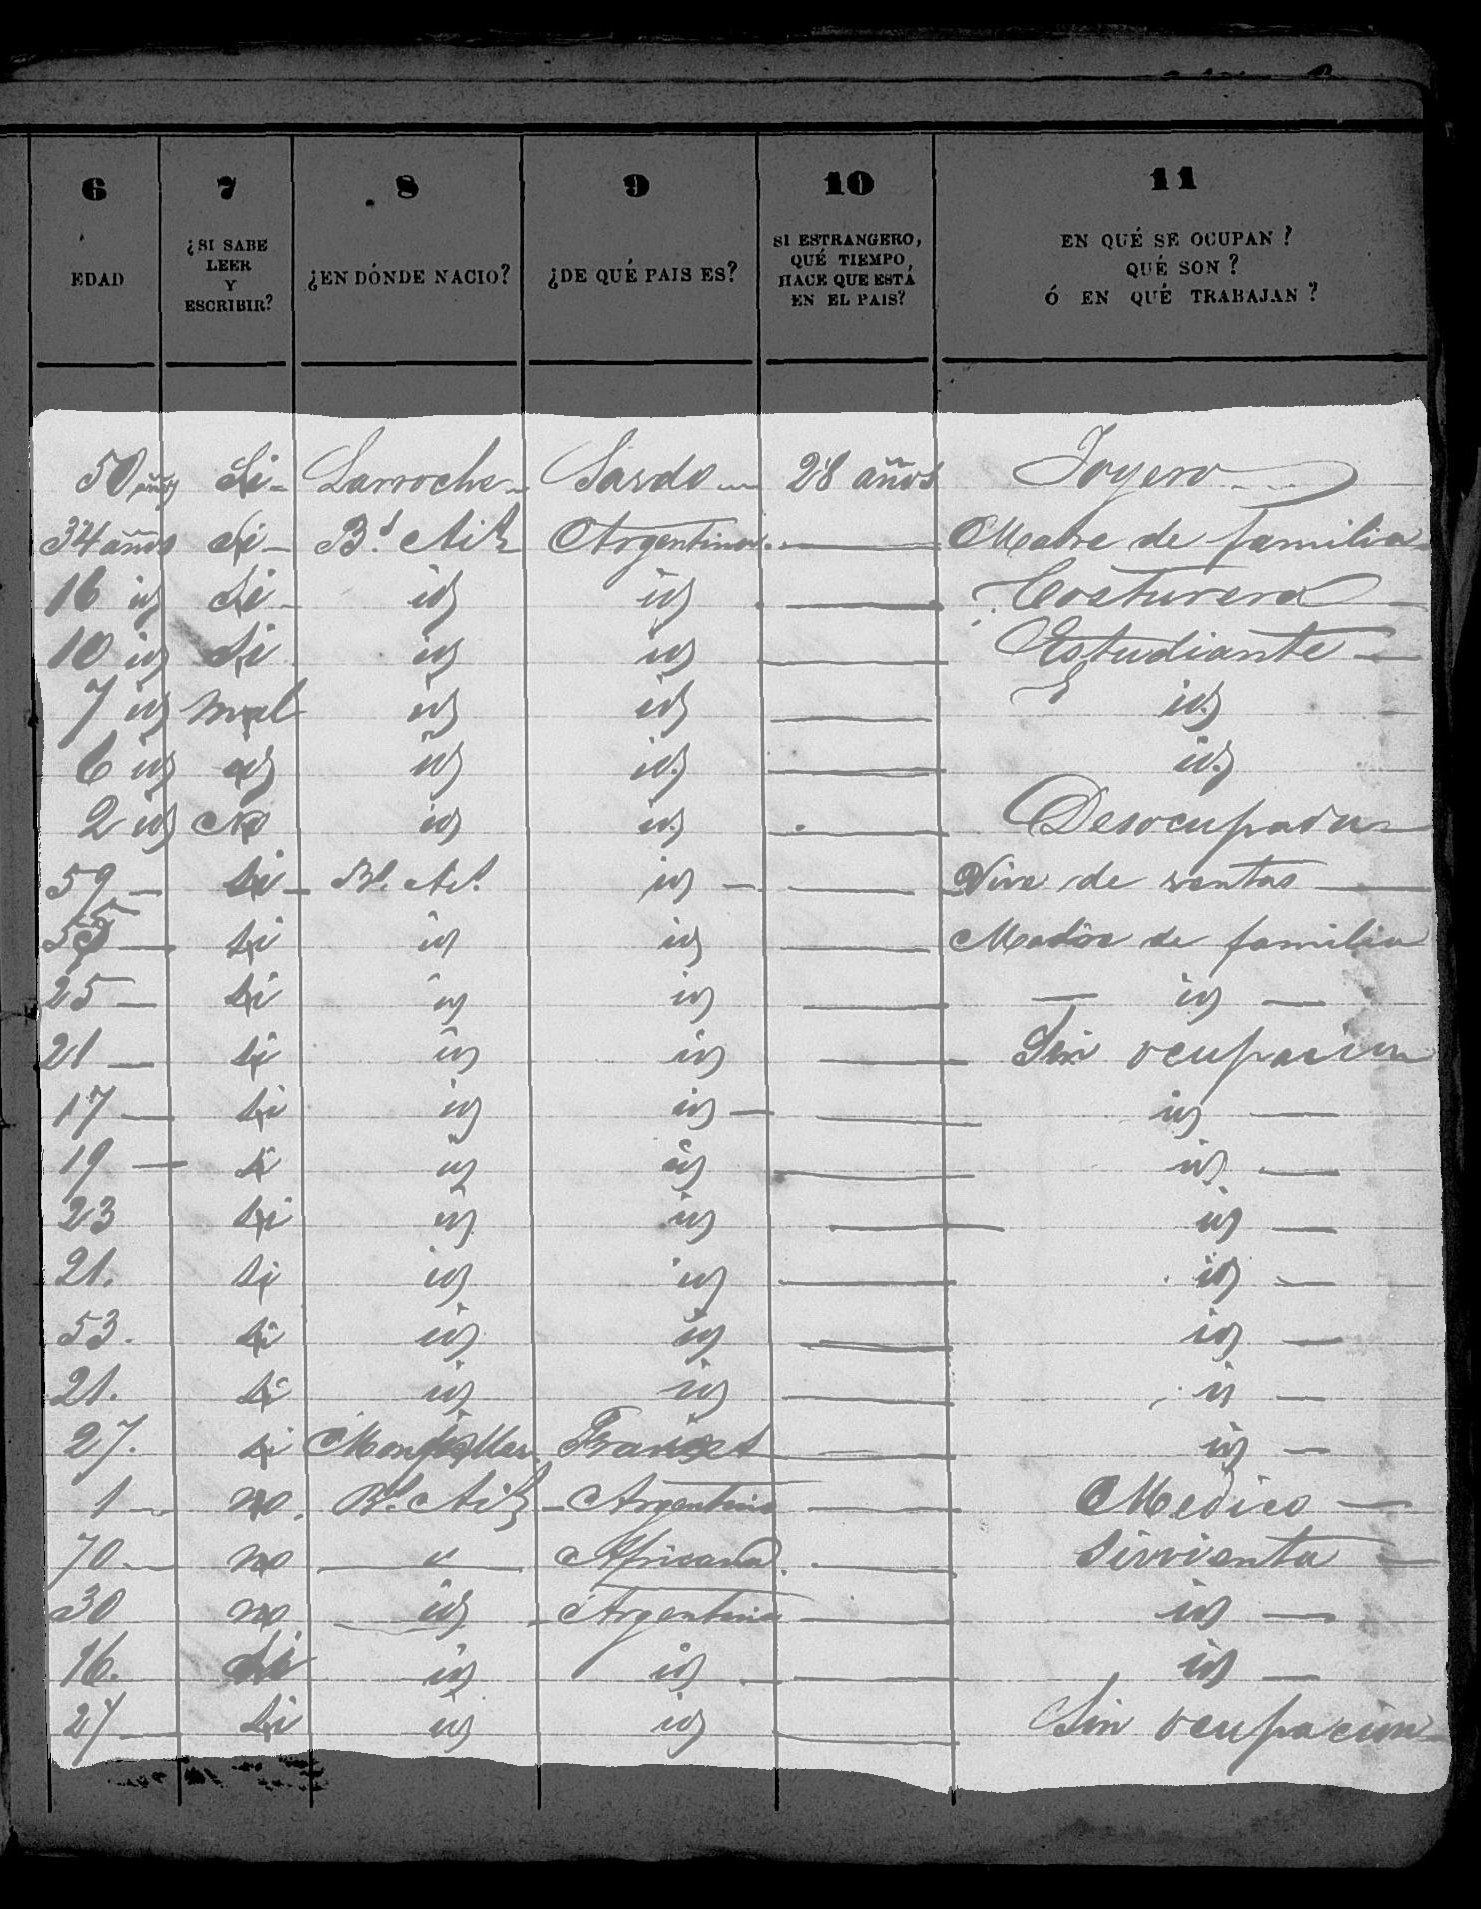 6 7 8 9 10 11
EDAD ¿SI SABE LEER Y ESCRIBIR? ¿EN DÓNDE NACIO? ¿DE QUÉ PAIS ES? SI ESTRANGERO, QUÉ TIEMPO HACE QUE ESTÁ EN EL PAIS? EN QUÉ SE OCUPAN? QUÉ SON? Ó EN QUÉ TRABAJAN?
50 años Si Larroche Sardo 28 años Joyero
34 años Si Bs. Ais Argentina Madre de familia
16 id Si id id Costurera
10 id Si id id Estudiante
7 id mal id id id
6 id id id id id
2 id No id id Desocupada
59 si Bs. As. id Vive de rentas
55 si id id Madre de familia
25 si id id id
21 si id id Sin ocupacion
17 si id id id
19 si id id id
23 si id id id
21. si id id id
53. si id id id
21. si id id id
27. si Francesa id
1 no. Bs. Ais Argentina Medico
70 no " Africana Sirvienta
30 no id Argentina id
16. Si id id id
27 Si id id Sin ocupacion